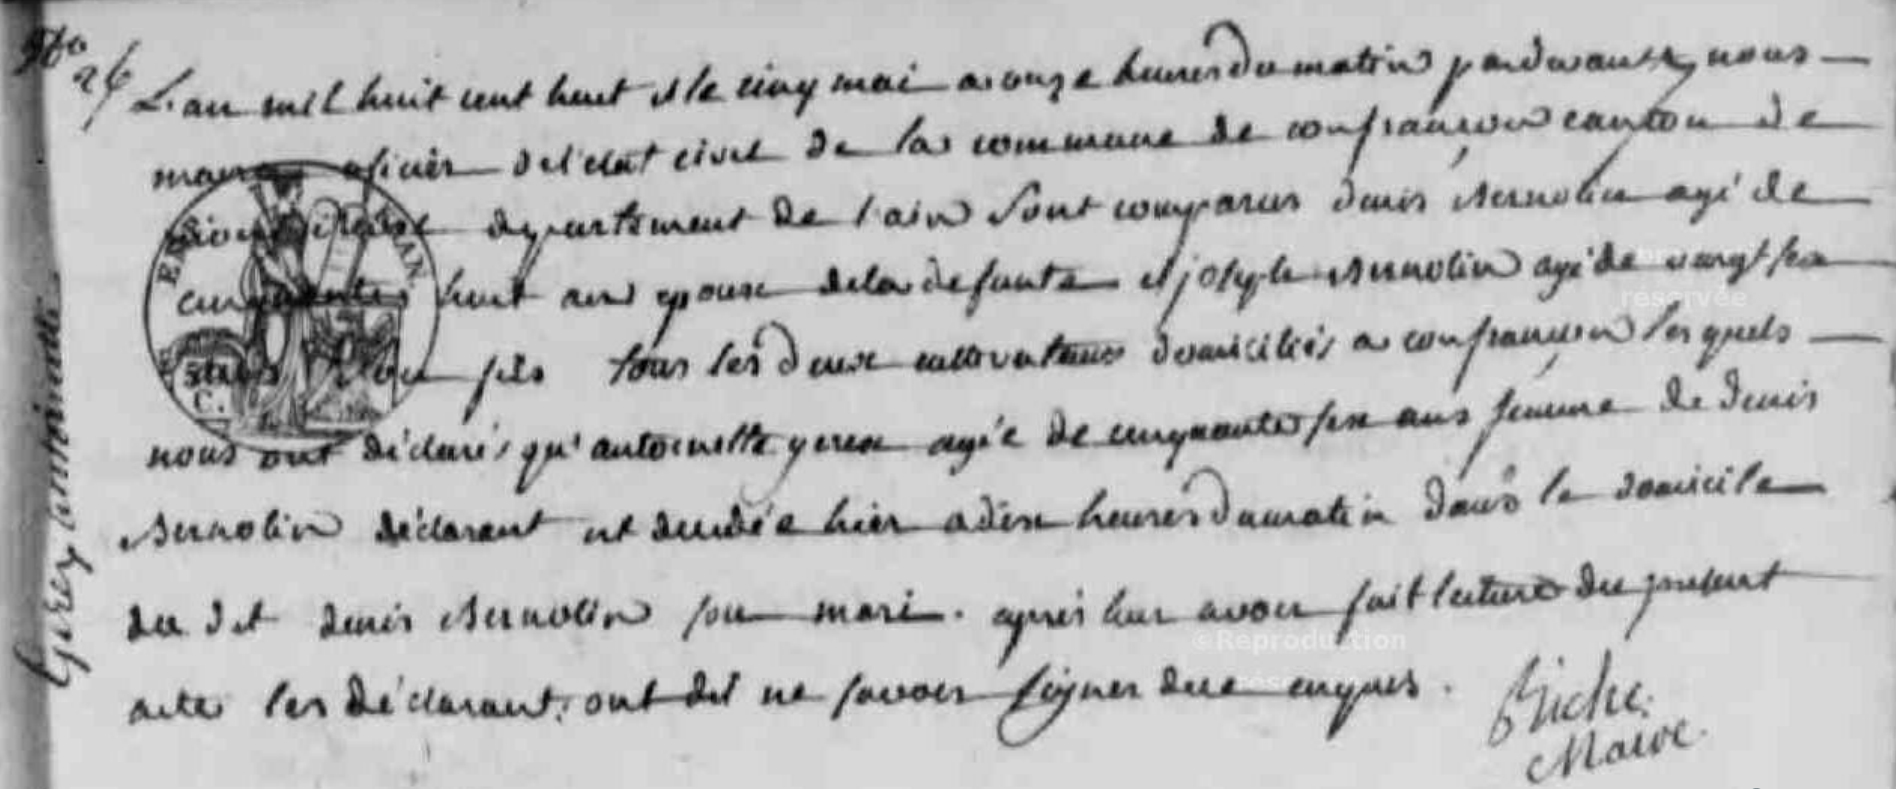 No 26
L'an mil huit cent huit et le cinq mai a onze heures du matin pardevant nous
maire oficier de l'etat civil de la commune de confrançon canton de
departement de l'ain sont comparus denis Bernolin agé de
cinquante huit ans epoux de la defunte et joseph Bernolin agé de vingt six
fils tous les deux cultivateurs domiciliés a confrançon lesquels
nous ont déclarés qu'antoinette gerex agée de cinquante six ans femme de denis
Bernolin déclarant est decedée hier a dix heures du matin dans le domicile
du dit denis Bernolin son mari. après leur avoir fait lecture du present
acte les déclarant ont dit ne savoir signer de ce enquis.
Maire
Gerex antoinette
C.
©Reproduction
réservée